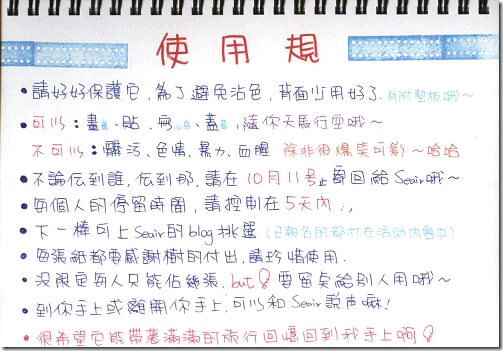 使用規
●請好好保護它,為了避免沾色,背面少用好了.有附墊板哦~
●可以:畫畫、貼、寫心得、蓋章,隨你天馬行空哦~
不可以:髒污、色情、暴力、血腥 除非很爆笑可愛~哈哈
●不論伝到誰,伝到那,請在10月11号上寄回給Seair哦~
●每個人的停留時間,請控制在5天內..
●下一棒可上Seair的blog挑選(已報名的都打在活動內容中)
●每張紙都要感謝樹的付出,請珍惜使用.
●沒限定每人只能佔幾張,but 要留点給別人用哦~
●到你手上或離開你手上,可以和Seair說声嘛!
●很希望它能帶著滿滿的旅行回憶回到我手上啊